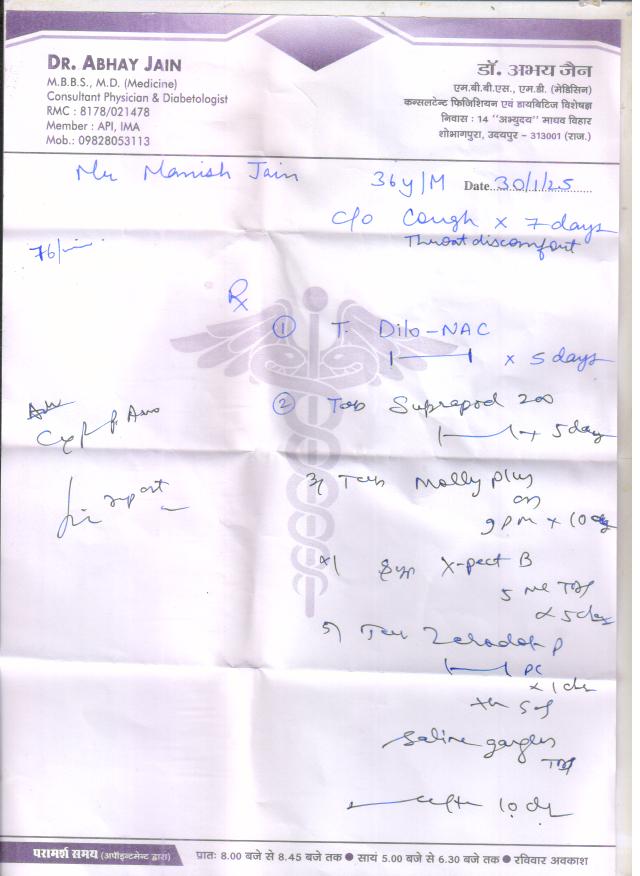 DR. ABHAY JAIN
M.B.B.S., M.D. (Medicine)
Consultant Physician & Diabetologist
RMC : 8178/021478
Member : API, IMA
Mob.: 09828053113
डॉ. अभय जैन
एम.बी.बी.एस., एम.डी. (मेडिसिन)
कन्सलटेन्ट फिजिशियन एवं डायबिटिज विशेषज्ञ
निवास : 14 "अभ्युदय" माधव विहार
शोभागपुरा, उदयपुर - 313001 (राज.)
Mr Manish Jain 36y/M Date 30/1/25
c/o Cough x 7 days
Throat discomfort
76/min
Rx
① T. Dilo-NAC
x 5 days
② Tab Suprapod 200
x 5 day
3) Tab Molly plus
on
9 PM x 10 d
Syp X-pect B
5 ml
x 5 d
5) Tab Zerodol P
PC
x 1 d
Saline gargles
report
after 10 d
परामर्श समय (अपॉइन्टमेन्ट द्वारा) प्रातः 8.00 बजे से 8.45 बजे तक ● सायं 5.00 बजे से 6.30 बजे तक ● रविवार अवकाश